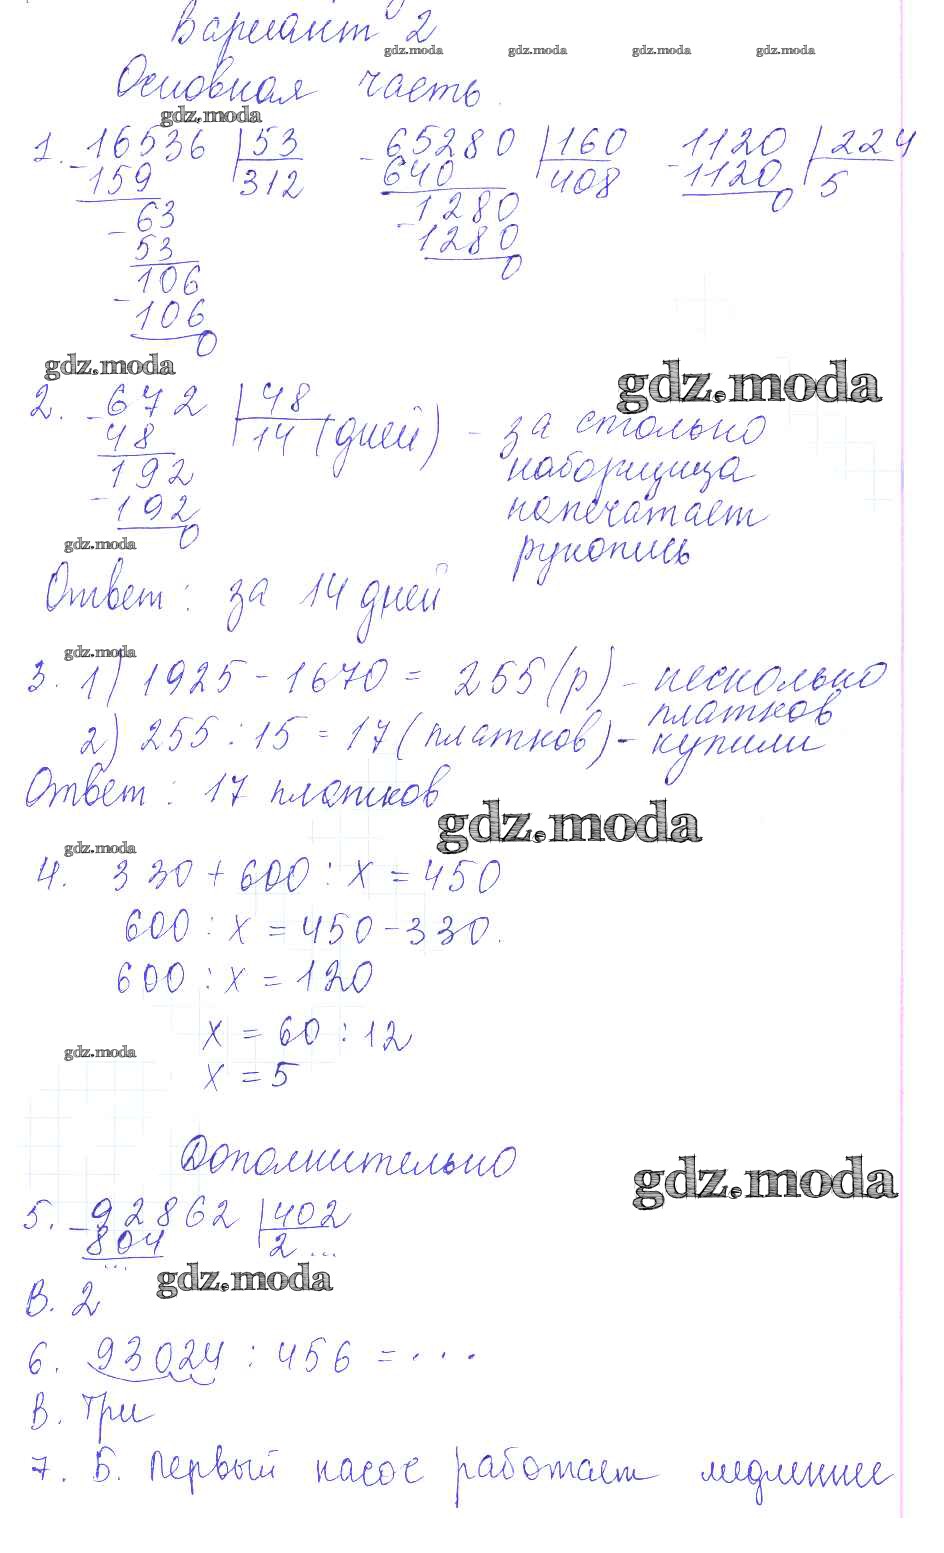 Вариант 2
gdz.moda gdz.moda gdz.moda gdz.moda
Основная часть
gdz.moda
1. 16536 | 53   65280 | 160   1120 | 224
- 159   312   - 640   408   - 1120   5
- 63   - 1280   0
53   1280
- 106   0
106
0
gdz.moda gdz.moda
2. - 672 | 48
48   14 (дней) - за столько
192   наборщица
- 192   напечатает
0   рукопись
gdz.moda
Ответ: за 14 дней
gdz.moda
3. 1) 1925 - 1670 = 255 (р) - несколько
платков
2) 255 : 15 = 17 (платков) - купили
Ответ: 17 платков
gdz.moda
gdz.moda
4. 330 + 600 : х = 450
600 : х = 450 - 330.
600 : х = 120
х = 60 : 12
gdz.moda
х = 5
Дополнительно
gdz.moda
5. - 92862 | 402
804   2 ...
...
gdz.moda
В. 2
6. 93024 : 456 = ...
В. Три
7. Б. Первый насос работает медленнее